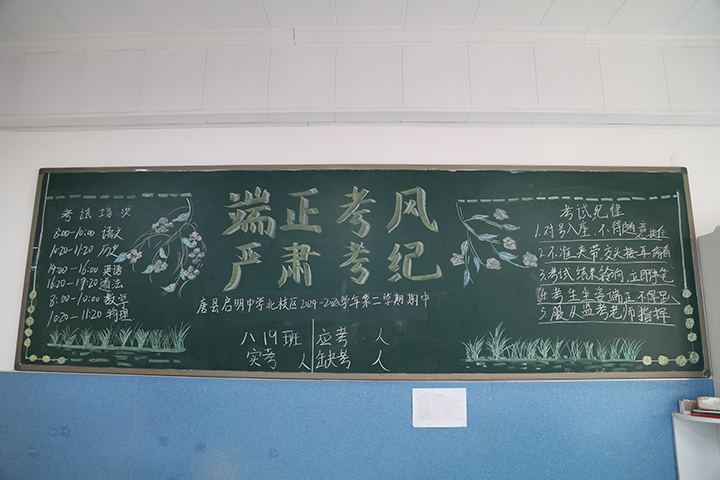 考试场次
8:00-10:00 语文
10:20-11:20 历史
14:00-16:00 英语
16:20-17:20 道法
8:00-10:00 数学
10:20-11:20 物理
端正考风
严肃考纪
唐县启明中学北校区2024-2025学年第二学期期中
八19班 应考 人
实考 人 缺考 人
考试纪律
1.对号入座 不得随意
2.不准夹带 交头接耳
3.考试结束铃响 立即
考生坐姿端正 不得
5.服从监考老师指挥